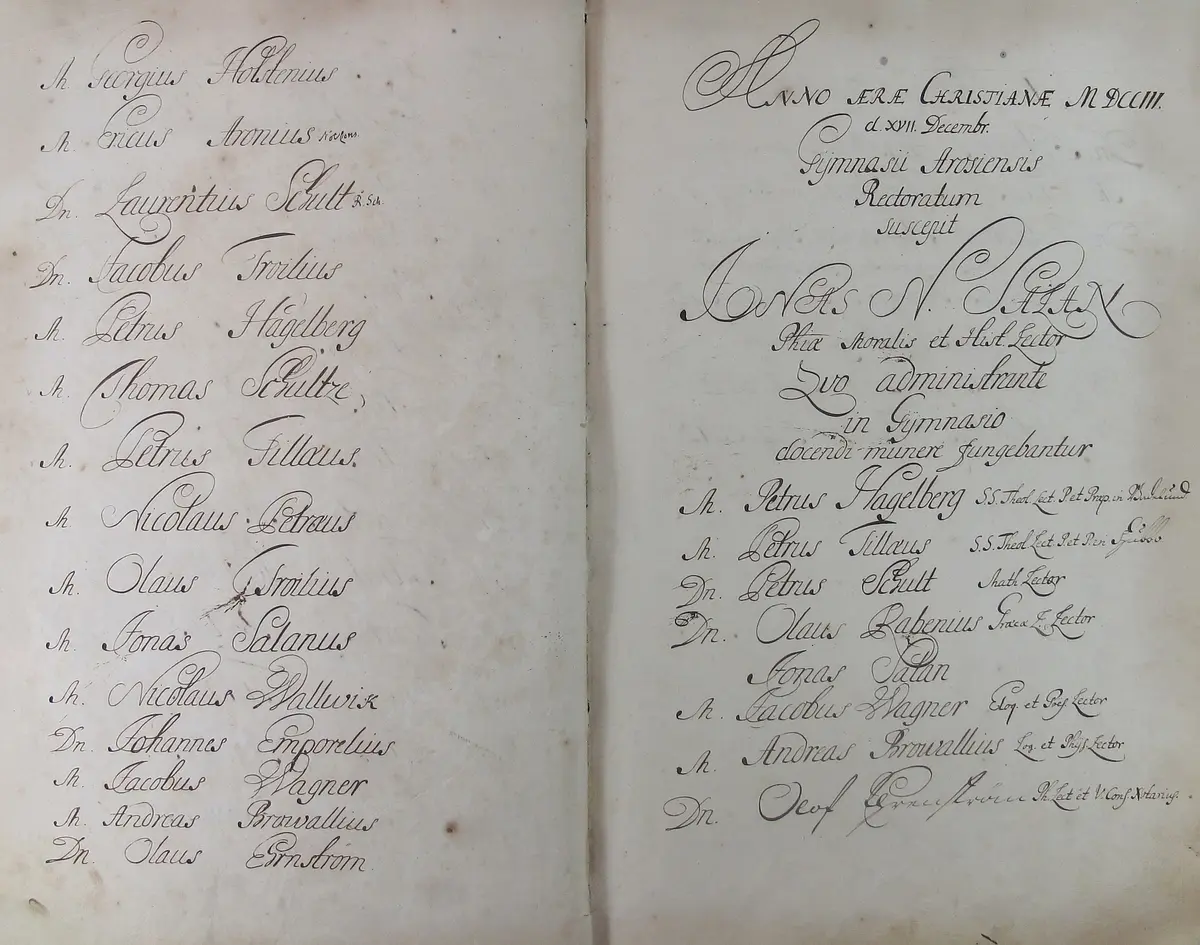 M. Georgius Holstenius.
M. Ericus Aronius
Dn. Laurentius Schult R. Sch.
Dn. Jacobus Troilius
M. Petrus Hagelberg
M. Thomas Schultze,
M. Petrus Fillæus.
M. Nicolaus Petræus
M. Olaus Troilius
M. Jonas Salanus
M. Nicolaus Wallwik
Dn. Johannes Emporelius
M. Jacobus Wagner
M. Andreas Browallius
Dn. Olaus Ernström.
ANNO ÆRÆ CHRISTIANÆ M DCCIII.
d. XVII. Decembr.
Gymnasii Arosiensis
Rectoratum
suscepit
JONAS N. SALAN
Phiæ Moralis et Hist. Lector
Qvo administrante
in Gymnasio
docendi munere fungebantur
M. Petrus Hagelberg S.S. Theol Lect P. et Præp. in
M. Petrus Fillæus S.S. Theol Lect P. et P. in
Dn. Petrus Schult Math Lector
Dn. Olaus Rabenius Græcæ L. Lector
Jonas Salan
M. Jacobus Wagner Eloq. et Poes Lector
M. Andreas Browallius Log. et Phys. Lector
Dn. Olof Ehrenström Ph. Lect et V. Cons Notarius.